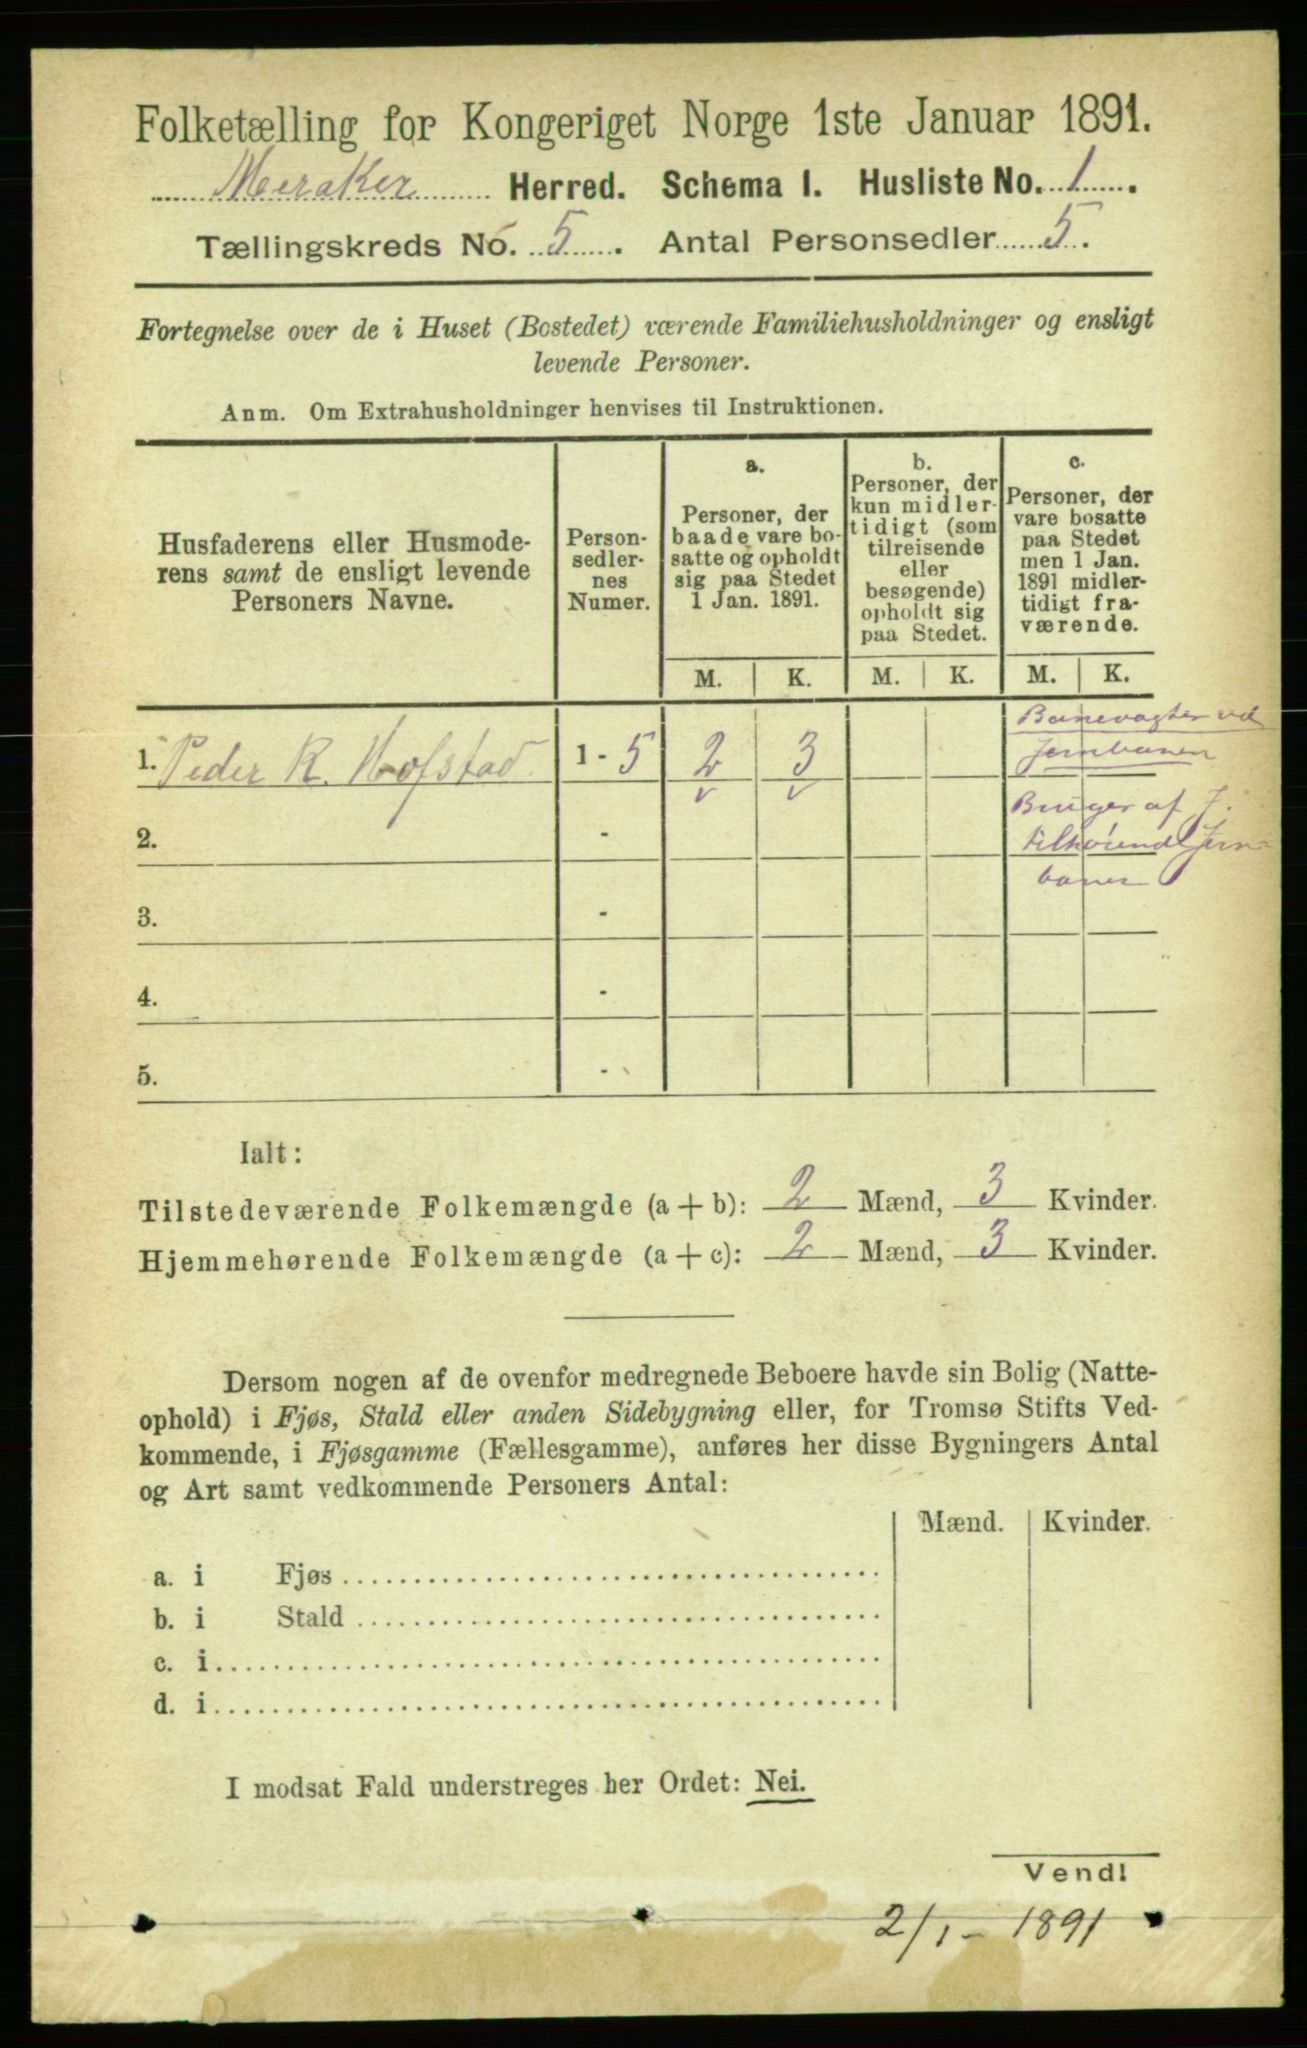 Folketælling for Kongeriget Norge 1ste Januar 1891.
Meraker Herred. Schema 1. Husliste No. 1.
Tællingskreds No. 5. Antal Personsedler 5.
Fortegnelse over de i Huset (Bostedet) værende Familiehusholdninger og ensligt
levende Personer.
Anm. Om Extrahusholdninger henvises til Instruktionen.
Husfaderens eller Husmode-
rens samt de ensligt levende
Personers Navne.
Person-
sedler-
nes
Numer.
a.
Personer, der
baade vare bo-
satte og opholdt
sig paa Stedet
1 Jan. 1891.
b.
Personer, der
kun midler-
tidigt (som
tilreisende
eller
besøgende)
opholdt sig
paa Stedet.
c.
Personer, der
vare bosatte
paa Stedet
men 1 Jan.
1891 midler-
tidigt fra-
værende.
M. K. M. K. M. K.
Banevogter ved
Jernbanen
1. Peder R. Hofstad. 1 - 5 2 3
Bruger af J.
tilhørende Jern-
banen
2. -
3. -
4. -
5. -
Ialt:
Tilstedeværende Folkemængde (a + b): 2 Mænd, 3 Kvinder.
Hjemmehørende Folkemængde (a + c): 2 Mænd, 3 Kvinder.
Dersom nogen af de ovenfor medregnede Beboere havde sin Bolig (Natte-
ophold) i Fjøs, Stald eller anden Sidebygning eller, for Tromsø Stifts Ved-
kommende, i Fjøsgamme (Fællesgamme), anføres her disse Bygningers Antal
og Art samt vedkommende Personers Antal:
Mænd. Kvinder.
a. i Fjøs
b. i Stald
c. i
d. i
I modsat Fald understreges her Ordet: Nei.
Vend!
2/1 - 1891